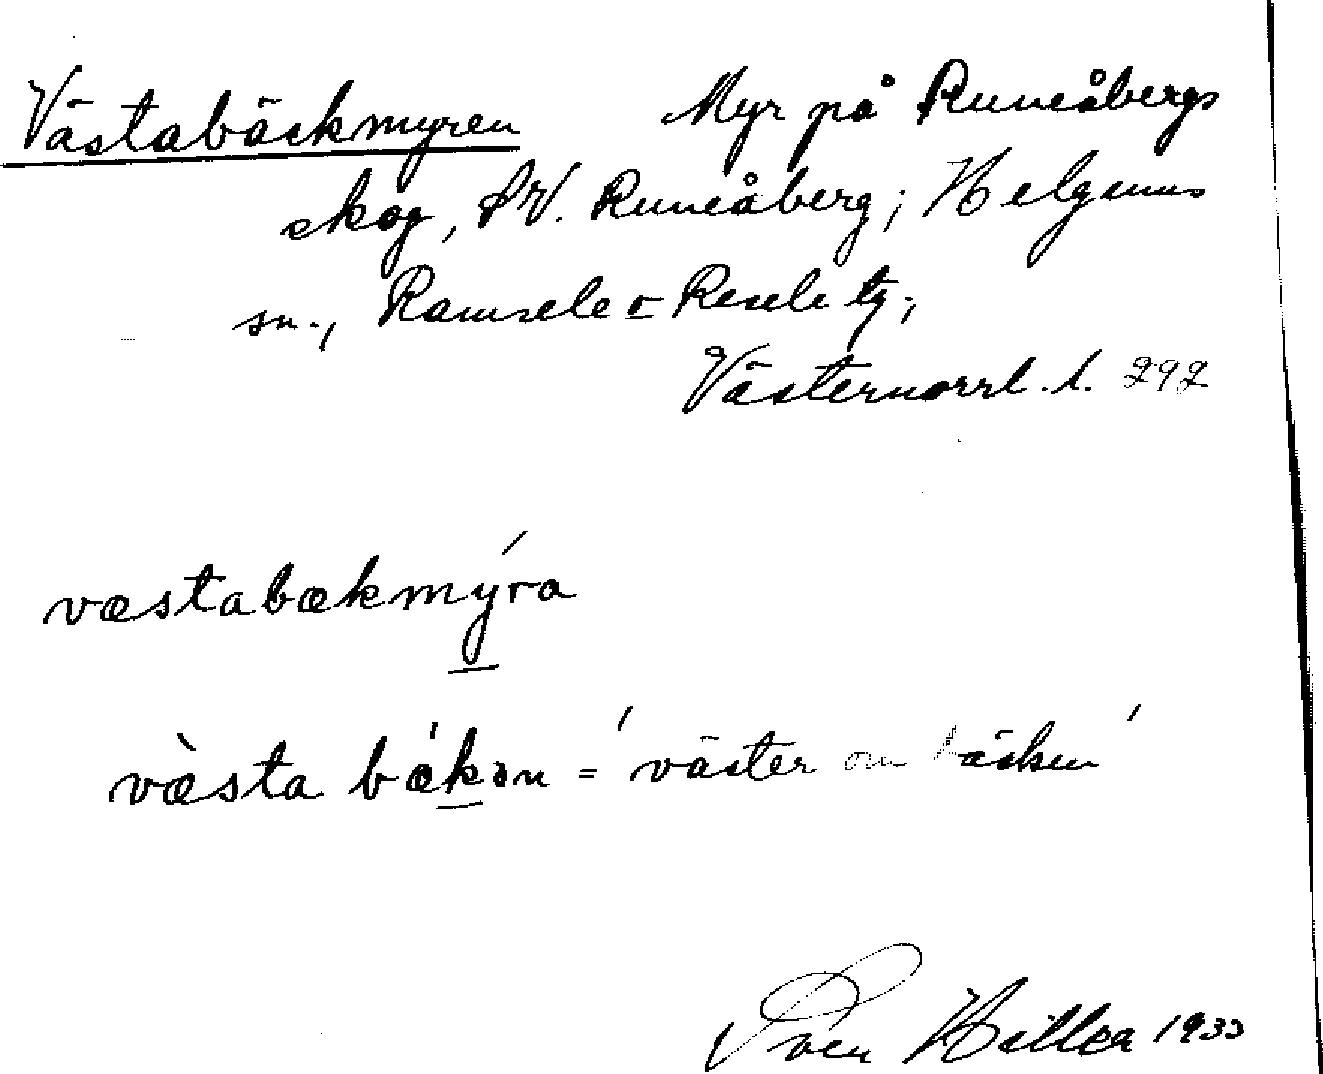 Västabäckmyren Myr på Runeåbergs
skog, SV. Runeåberg; Helgums
sn., Ramsele o Resele tg,
Västernorrl. l. 292
væstabækmýra
væ̀sta bǽkən = 'väster om bäcken'
Sven Hillea 1933